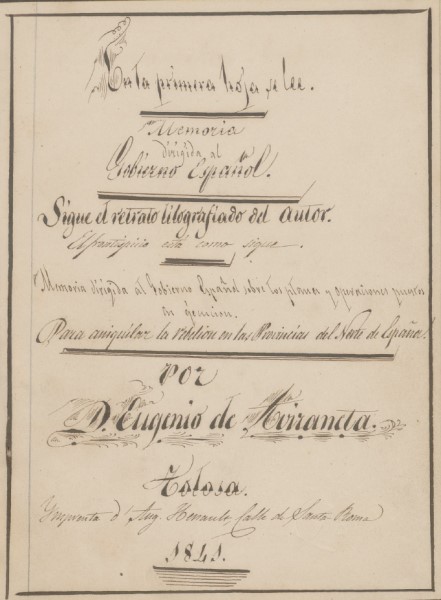 En la primera hoja se lee.
"Memoria
dirigida al
Gobierno Español.
Sigue el retrato litografiado del autor.
El frontispicio está como sigue.
"Memoria dirigida al Gobierno Español sobre los planes y operaciones puestos
en ejecucion.
Para aniquilar la rebelion en las Provincias del Norte de España."
Por
D. Eugenio de Avirraneta.
Tolosa.
Imprenta d' Aug. Henault, Calle de Santa Roma
1841.